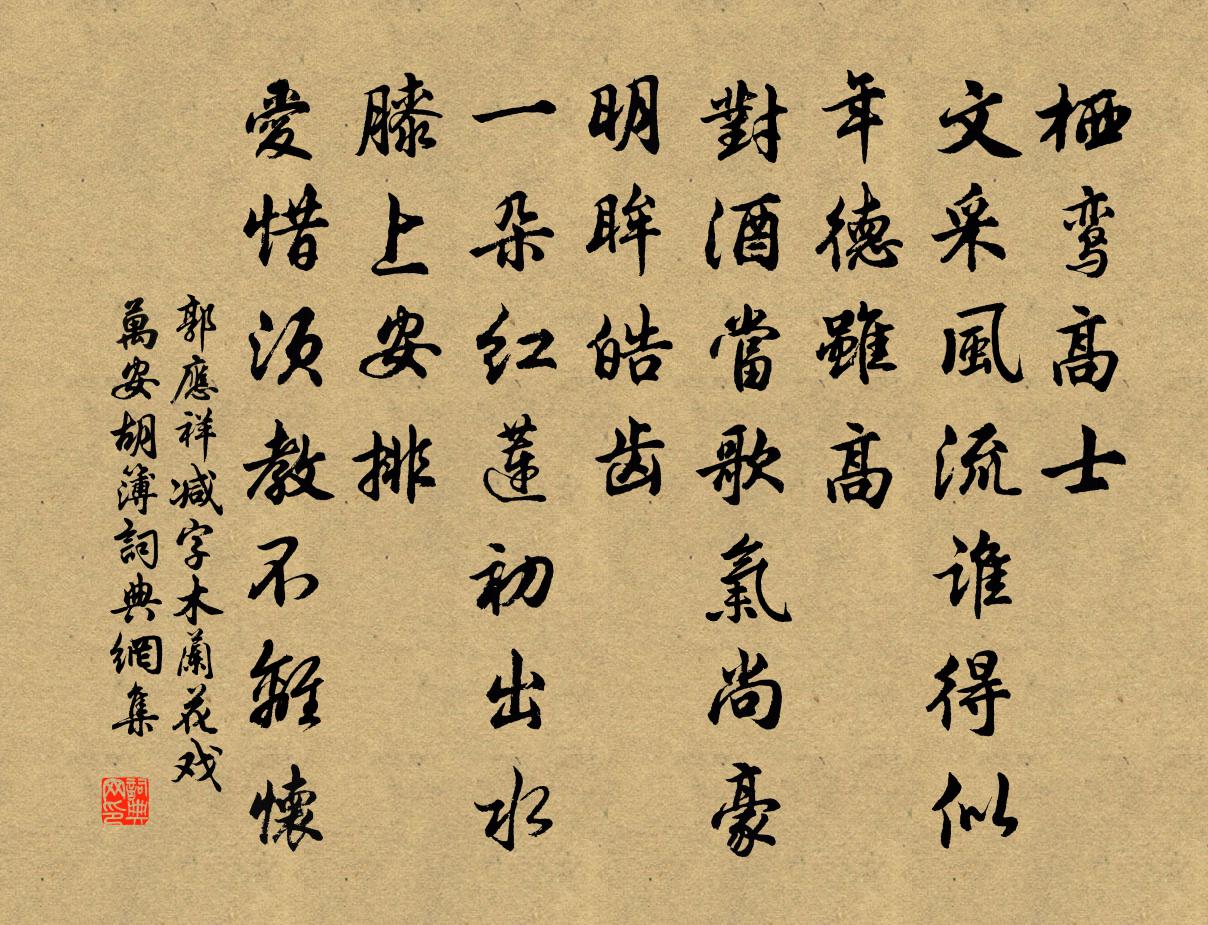 栖鸾高士
文采風流谁得似
年德雖高
對酒當歌氣尚豪
明眸皓齿
一朵红蓮初出水
膝上安排
愛惜须教不離懷
郭應祥减字木蘭花戏
萬安胡簿詞典網集
詞典网印